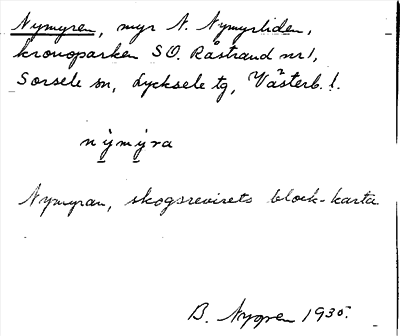 Nymyren, myr N. Nymyrliden,
kronoparken SO. Råstrand nr 1,
Sorsele sn, Lycksele tg, Västerb. l.
nỳmỳra
Nymyran, skogsrevirets block-karta
B. Nygren 1935.